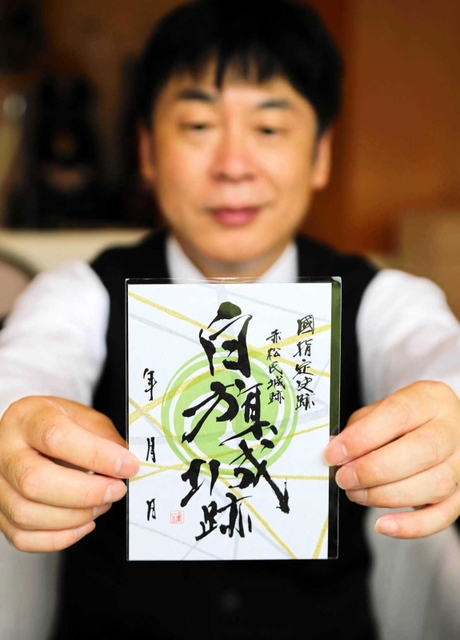 國指定史跡
赤松氏城跡
白旗城跡
年 月 日